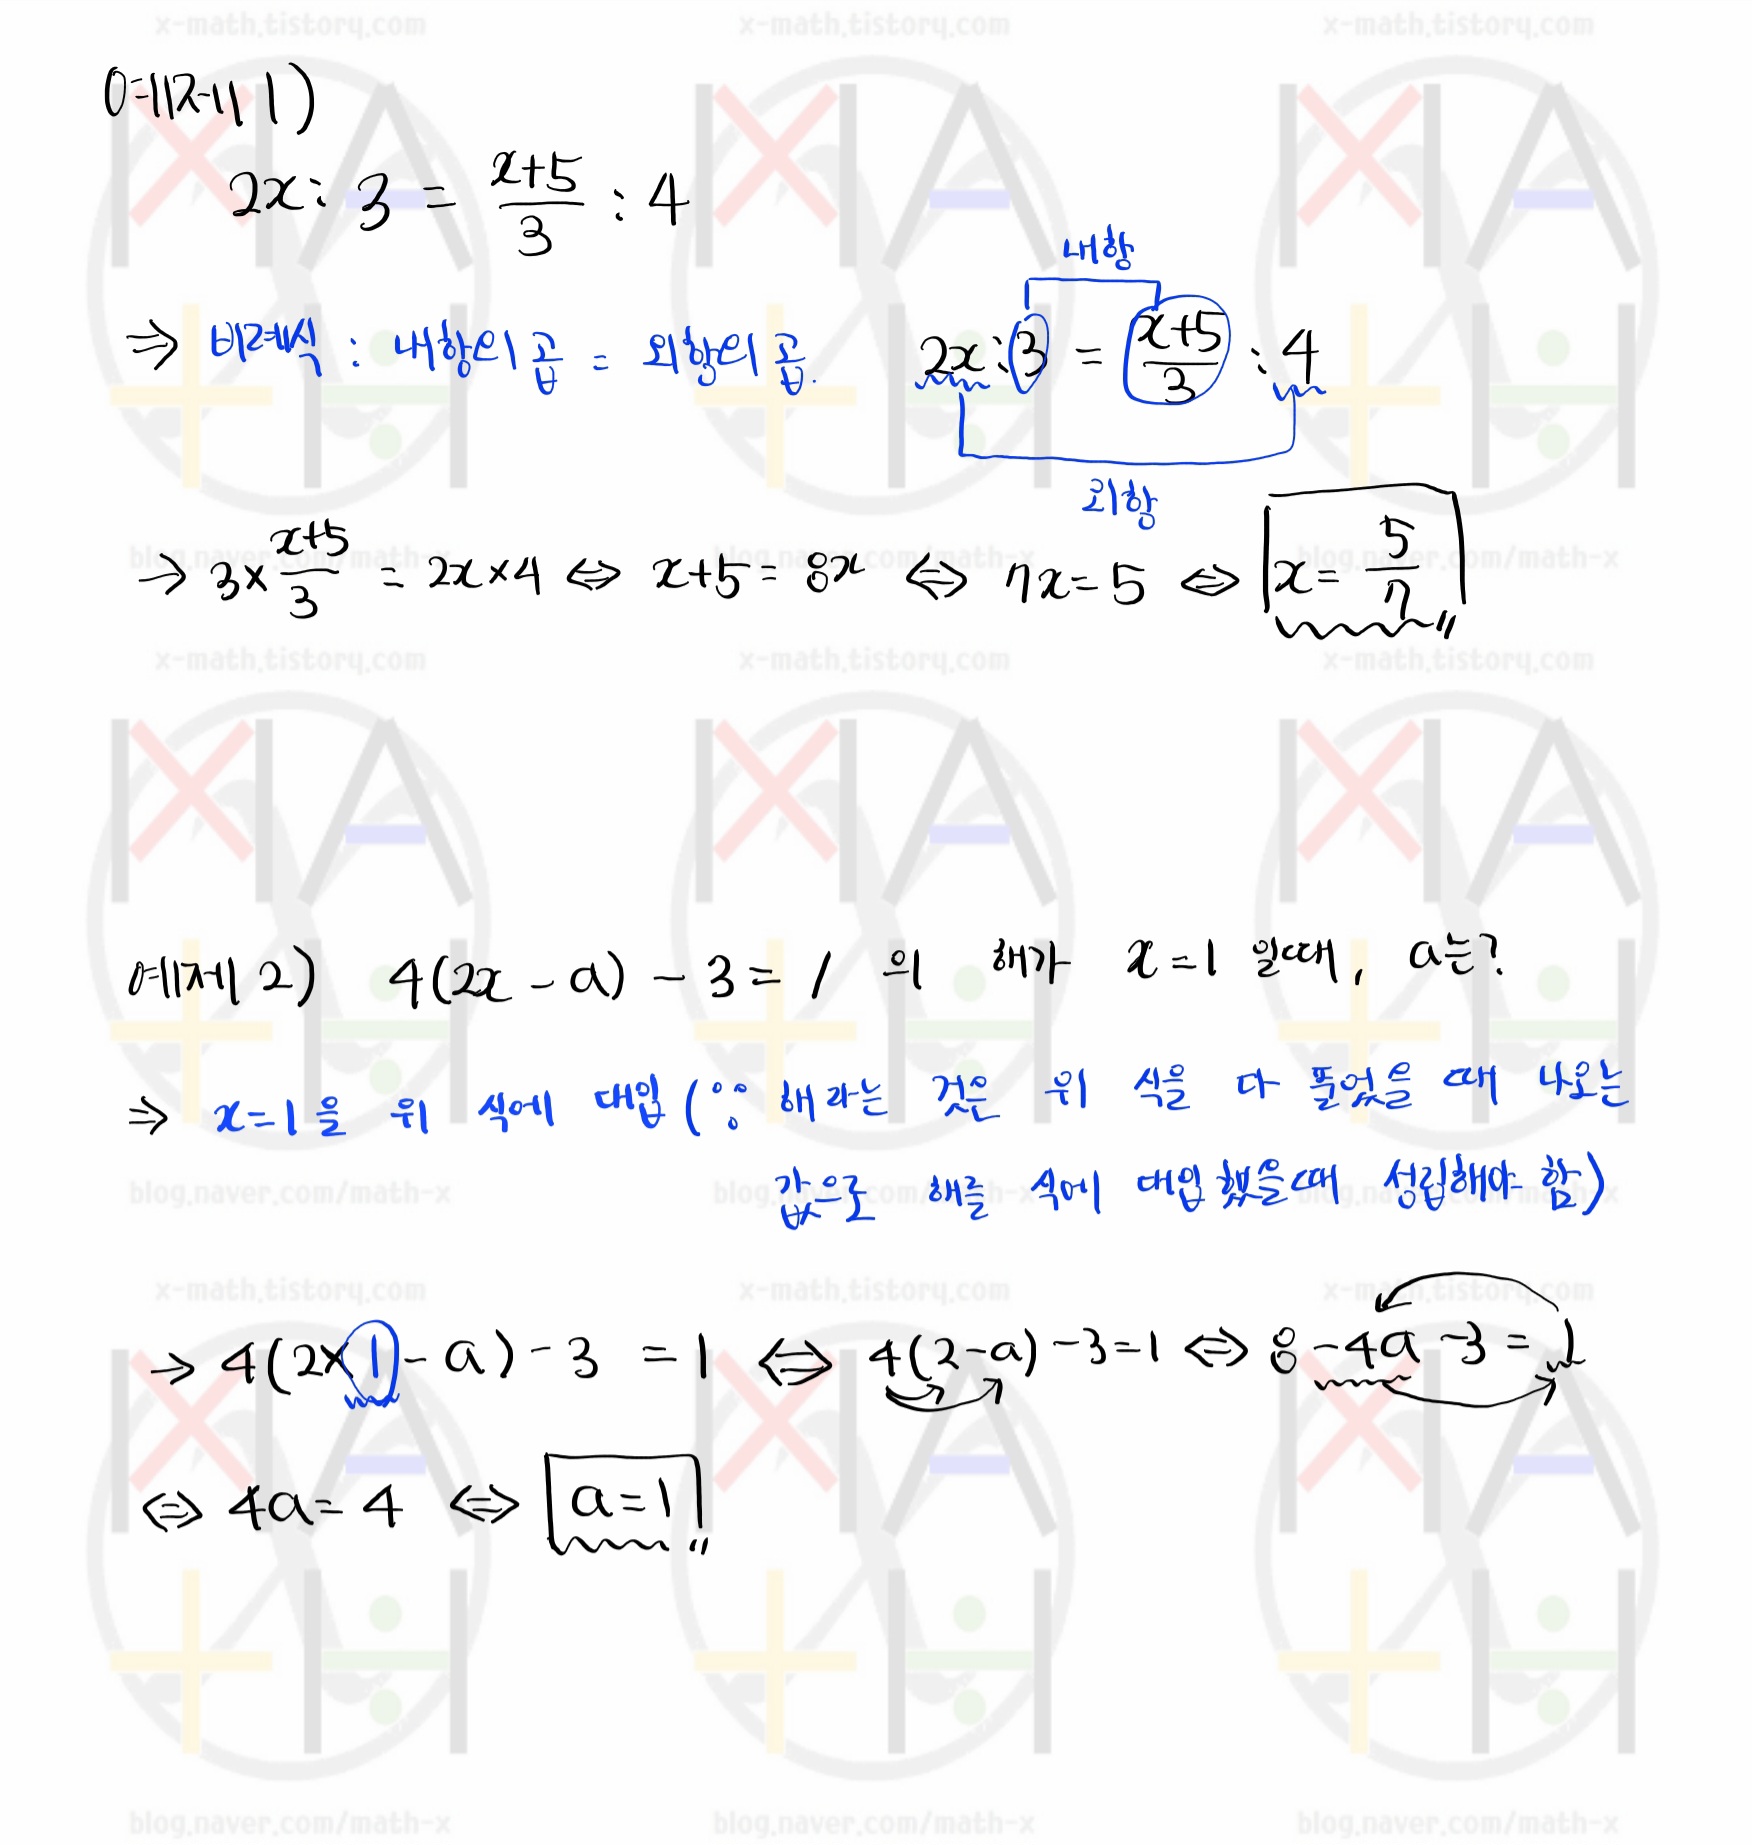 x-math.tistory.com x-math.tistory.com x-math.tistory.com
예제 1)
2x : 3 = (x+5)/3 : 4
내항
⇒ 비례식 : 내항의 곱 = 외항의 곱. 2x : 3 = (x+5)/3 : 4
외항
blog.naver.com/math-x blog.naver.com/math-x blog.naver.com/math-x
→ 3 × (x+5)/3 = 2x × 4 ⇔ x+5 = 8x ⇔ 7x = 5 ⇔ x = 5/7 〃
x-math.tistory.com x-math.tistory.com x-math.tistory.com
예제 2) 4(2x - a) - 3 = 1 의 해가 x = 1 일때, a는?
⇒ x = 1 을 위 식에 대입 (∵ 해라는 것은 위 식을 다 풀었을 때 나오는
값으로 해를 식에 대입했을때 성립해야 함)
blog.naver.com/math-x blog.naver.com/math-x blog.naver.com/math-x
x-math.tistory.com x-math.tistory.com x-math.tistory.com
→ 4(2×1 - a) - 3 = 1 ⇔ 4(2-a) - 3 = 1 ⇔ 8 - 4a - 3 = 1
⇔ 4a = 4 ⇔ a = 1 〃
blog.naver.com/math-x blog.naver.com/math-x blog.naver.com/math-x